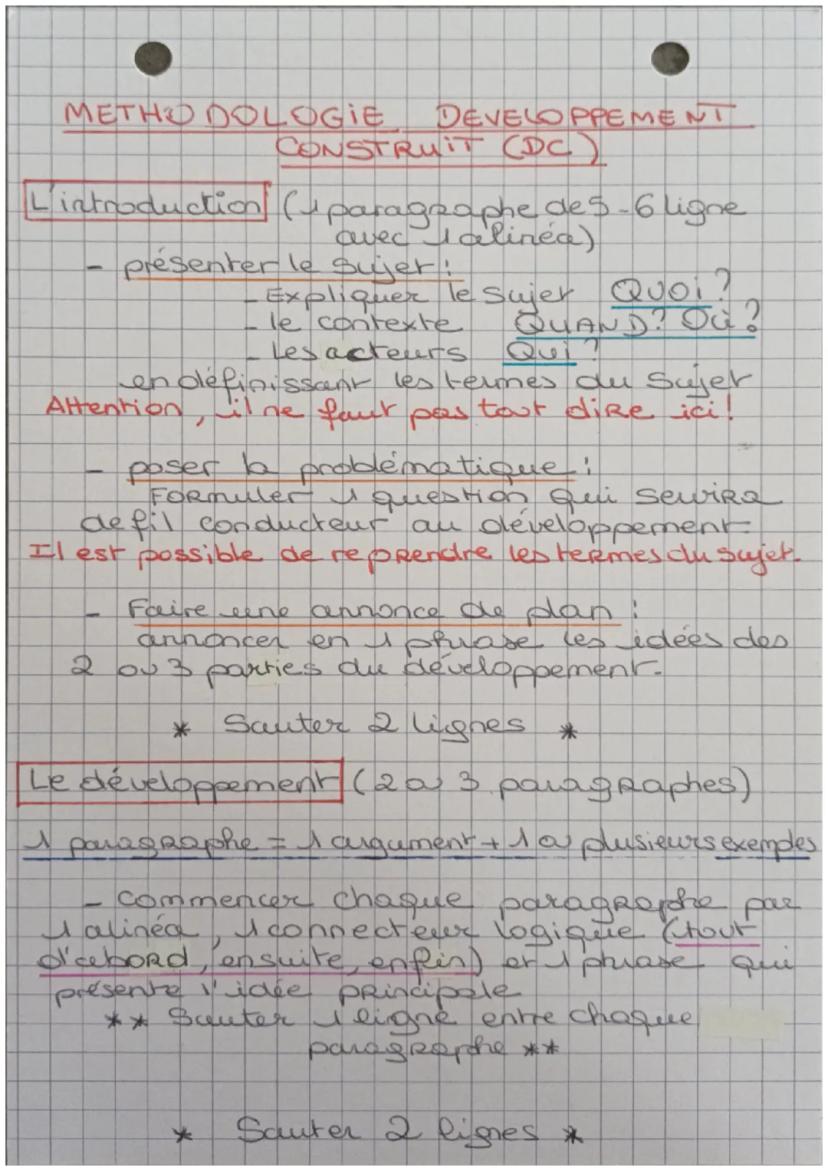 METHODOLOGIE DEVELOPPEMENT
CONSTRUIT (DC)
L'introduction (1 paragraphe de 5-6 ligne
avec 1 alinéa)
- présenter le sujet :
- Expliquer le sujet QUOI ?
- le contexte QUAND ? Où ?
- Les acteurs Qui ?
en définissant les termes du sujet
Attention, il ne faut pas tout dire ici !
- poser la problématique :
Formuler 1 question qui servira
de fil conducteur au développement
Il est possible de reprendre les termes du sujet.
- Faire une annonce de plan :
annoncer en 1 phrase les idées des
2 ou 3 parties du développement.
* Sauter 2 lignes *
Le développement (2 ou 3 paragraphes)
1 paragraphe = 1 argument + 1 ou plusieurs exemples
- commencer chaque paragraphe par
1 alinéa, 1 connecteur logique (tout
d'abord, ensuite, enfin) et 1 phrase qui
présente l'idée principale
** Sauter 1 ligne entre chaque
paragraphe **
* Sauter 2 lignes *